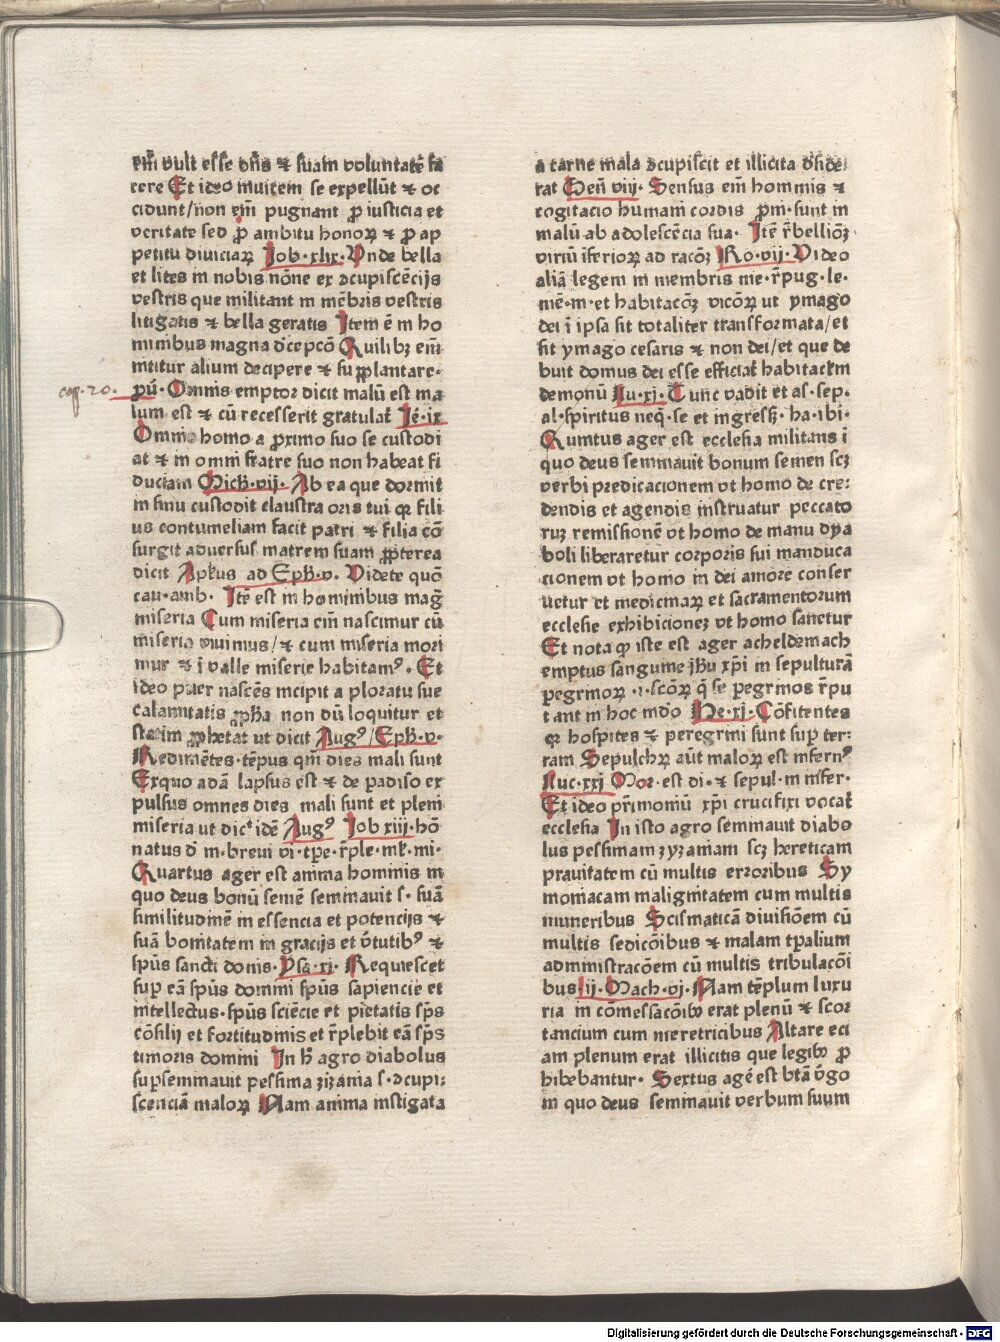 em̄ vult esse dn̄s ⁊ suam voluntatē fa
cere Et ideo inuicem se expellūt ⁊ oc
cidunt/non em̄ pugnant ꝓ iusticia et
veritate sed ꝓ ambitu honoꝝ ⁊ ꝓ ap
petitu diuiciaꝝ Job·xlix· Vnde bella
et lites in nobis nōne ex ↄcupiscēcijs
vestris que militant in mēbris vestris
litigatis ⁊ bella geratis Item ē in ho
minibus magna d̄cepcō Quilibꝫ em̄
nititur alium decipere ⁊ supplantare·
cap·20·
ꝓū· Omnis emptor dicit malū est ma
lum est ⁊ cū recesserit gratulat᷑ Jē·ix
Omnis homo a ꝓximo suo se custodi
at ⁊ in omni fratre suo non habeat fi
duciam Mich·vij· Ab ea que dormit
in sinu custodit claustra oris tui qꝛ fili
us contumeliam facit patri ⁊ filia cō
surgit aduersus matrem suam ꝓpterea
dicit Apl̄us ad Eph·v· Videte quō
cau·amb· Itē est in hominibus maḡ
miseria Cum miseria em̄ nascimur cū
miseria viuimus/⁊ cum miseria mori
mur ⁊ ī valle miserie habitamꝰ· Et
ideo puer nascēs incipit a ploratu sue
calamitatis ꝓph̄a non dū loquitur et
statim ꝓphetat ut dicit Augꝰ/Eph·v·
Redimētes·tēpus qm̄ dies mali sunt
Exquo adā lapsus est ⁊ de padiso ex
pulsus omnes dies mali sunt et pleni
miseria ut dic̄t idē Augꝰ Job xiiij·hō
natus d̄ m·breui vi·tp̄e·r̄ple·ml̄·mi·
Quartus ager est anima hominis in
quo deus bonū semē seminauit s· suā
similitudinē in essencia et potencijs ⁊
suā bonitatem in gracijs et v̄tutibꝰ ⁊
sp̄us sancti donis· Ysa·xi· Requiescet
suꝑ eā sp̄us domini sp̄us sapiencie et
intellectus·sp̄us sciēcie et pietatis sp̄s
cōsilij et fortitudinis et r̄plebit eā sp̄s
timoris domini In h̄ agro diabolus
suꝑseminauit pessima zizania s·ↄcupi
scenciā maloꝝ Nam anima instigata
a carne mala ↄcupiscit et illicita d̄side:
rat Gen̄ viij· Sensus em̄ hominis ⁊
cogitacio humani cordis ꝓni·sunt in
malū ab adolescēcia sua· Itē r̄belliōꝫ
viriū īferioꝝ ad racōꝫ Ro·vij· Video
aliā legem in membris me·r̄pug·le·
mē·m·et habitacōꝫ vicōꝝ ut ymago
dei ī ipsa sit totaliter transformata/et
sit ymago cesaris ⁊ non dei/et que de
buit domus dei esse efficiat᷑ habitac̄m
demonū Lu·xi· Tunc vadit et as·sep·
al·spiritus neq̄·se et ingress̄·ha·ibi·
Quintus ager est ecclesia militans ī
quo deus seminauit bonum semen scꝫ
verbi predicacionem vt homo de cre:
dendis et agendis instruatur peccato
ruꝫ remissionē vt homo de manu dya
boli liberaretur corporis sui manduca
cionem vt homo in dei amore conser
uetur et medicinaꝝ et sacramentorum
ecclesie exhibicioneꝫ vt homo sanetur
Et nota ꝙ iste est ager acheldemach
emptus sanguine jh̄u xp̄i in sepulturā
pegrinoꝝ ·i·scōꝝ q̄ se pegrinos r̄pu
tant in hoc mdō He·xj· Cōfitentes
qꝛ hospites ⁊ peregrini sunt suꝑ ter:
ram Sepulchꝝ aūt maloꝝ est infernꝰ
Luc·xxj Mor·est di·⁊ sepul·in infer·
Et ideo pr̄imoniū xp̄i crucifixi vocat᷑
ecclesia In isto agro seminauit diabo
lus pessimam zyzaniam scꝫ hereticam
prauitatem cū multis erroribus Sy
moniacam malignitatem cum multis
muneribus Scismaticā diuisiōem cū
multis sedicōibus ⁊ malam tp̄alium
administracōem cū multis tribulacōi
bus·ij·Mach·vj· Nam tēplum luxu
ria in cōmessacōibꝫ erat plenū ⁊ scor
tancium cum meretricibus Altare eci
am plenum erat illicitis que legibꝫ ꝓ
hibebantur· Sextus agē est btā v̄go
in quo deus seminauit verbum suum
Digitalisierung gefördert durch die Deutsche Forschungsgemeinschaft - DFG